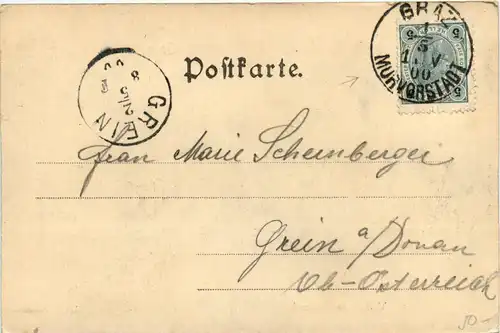 GRAZ
1 V
00
MURVORSTADT
5 5
Postkarte.
GREIN
2/5
00
8
Frau Marie Schernberger
Grein a/Donau
Ob-Österreich
50-